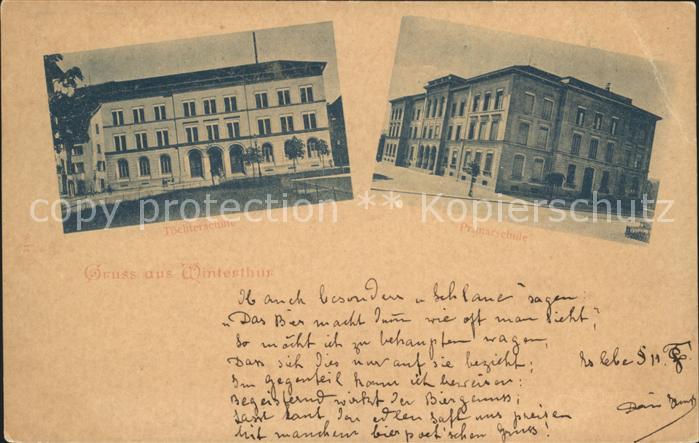 copy protection Kopierschutz
Töchterschule
Primarschule
Gruss aus Winterthur
Ob auch besonders „Schlaue" sagen:
„Das Bier macht dumm wie oft man sieht,"
So möcht ich zu behaupten wagen,
Dass sich dies nur auf sie bezieht;
Im Gegenteil kann ich beweisen:
Begeisternd wirkt der Biergenuss;
Lasst laut den edlen Saft uns preisen
Mit manchem bierpoet'schen Gruss!
Es lebe
Dein